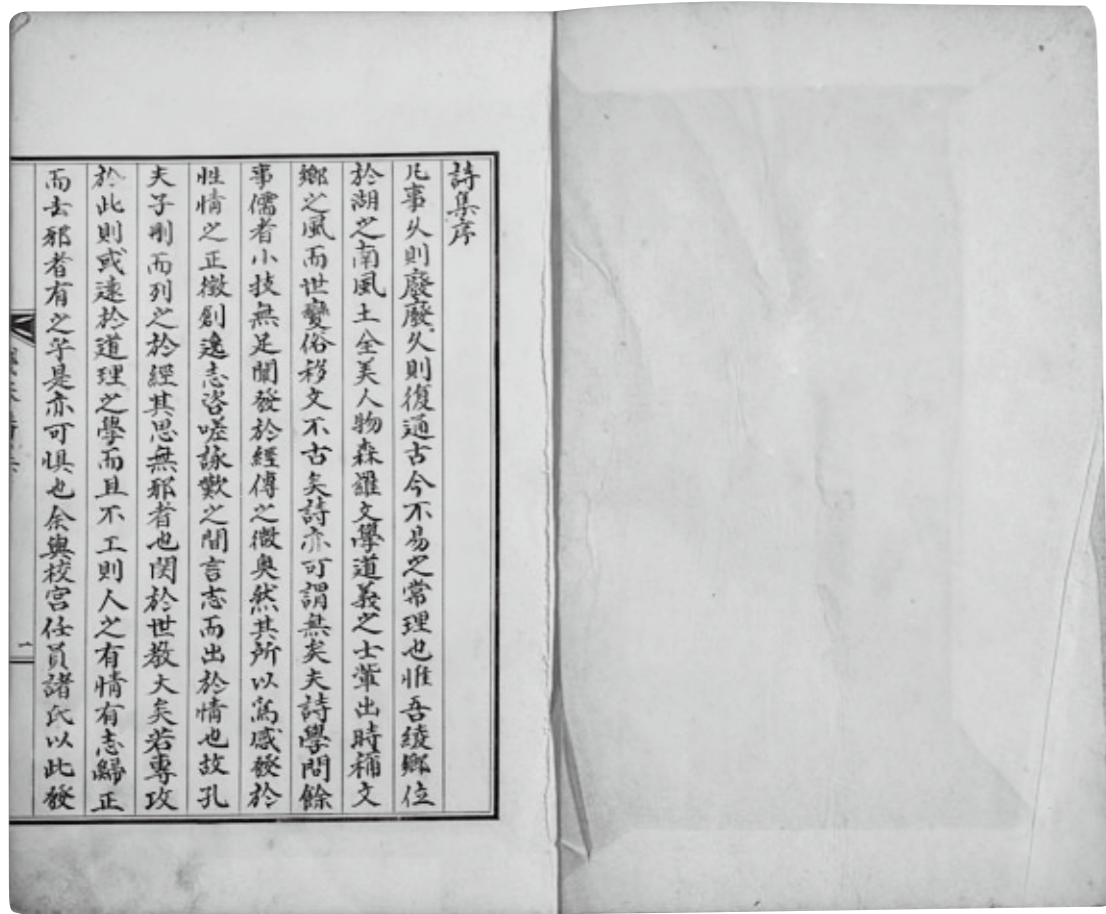 詩集序
凡事久則廢廢久則復通古今不易之常理也惟吾綾鄉位
於湖之南風土全美人物森羅文學道義之士輩出時稱文
鄉之風而世變俗移文不古矣詩亦可謂無矣夫詩學問餘
事儒者小技無足闡發於經傳之微奧然其所以寫感發於
性情之正徵創逸志咨嗟詠歎之間言志而出於情也故孔
夫子刪而列之於經其思無邪者也関於世教大矣若專攻
於此則或遠於道理之學而且不工則人之有情有志歸正
而去邪者有之乎是亦可惧也余與校宮任員諸氏以此發
一